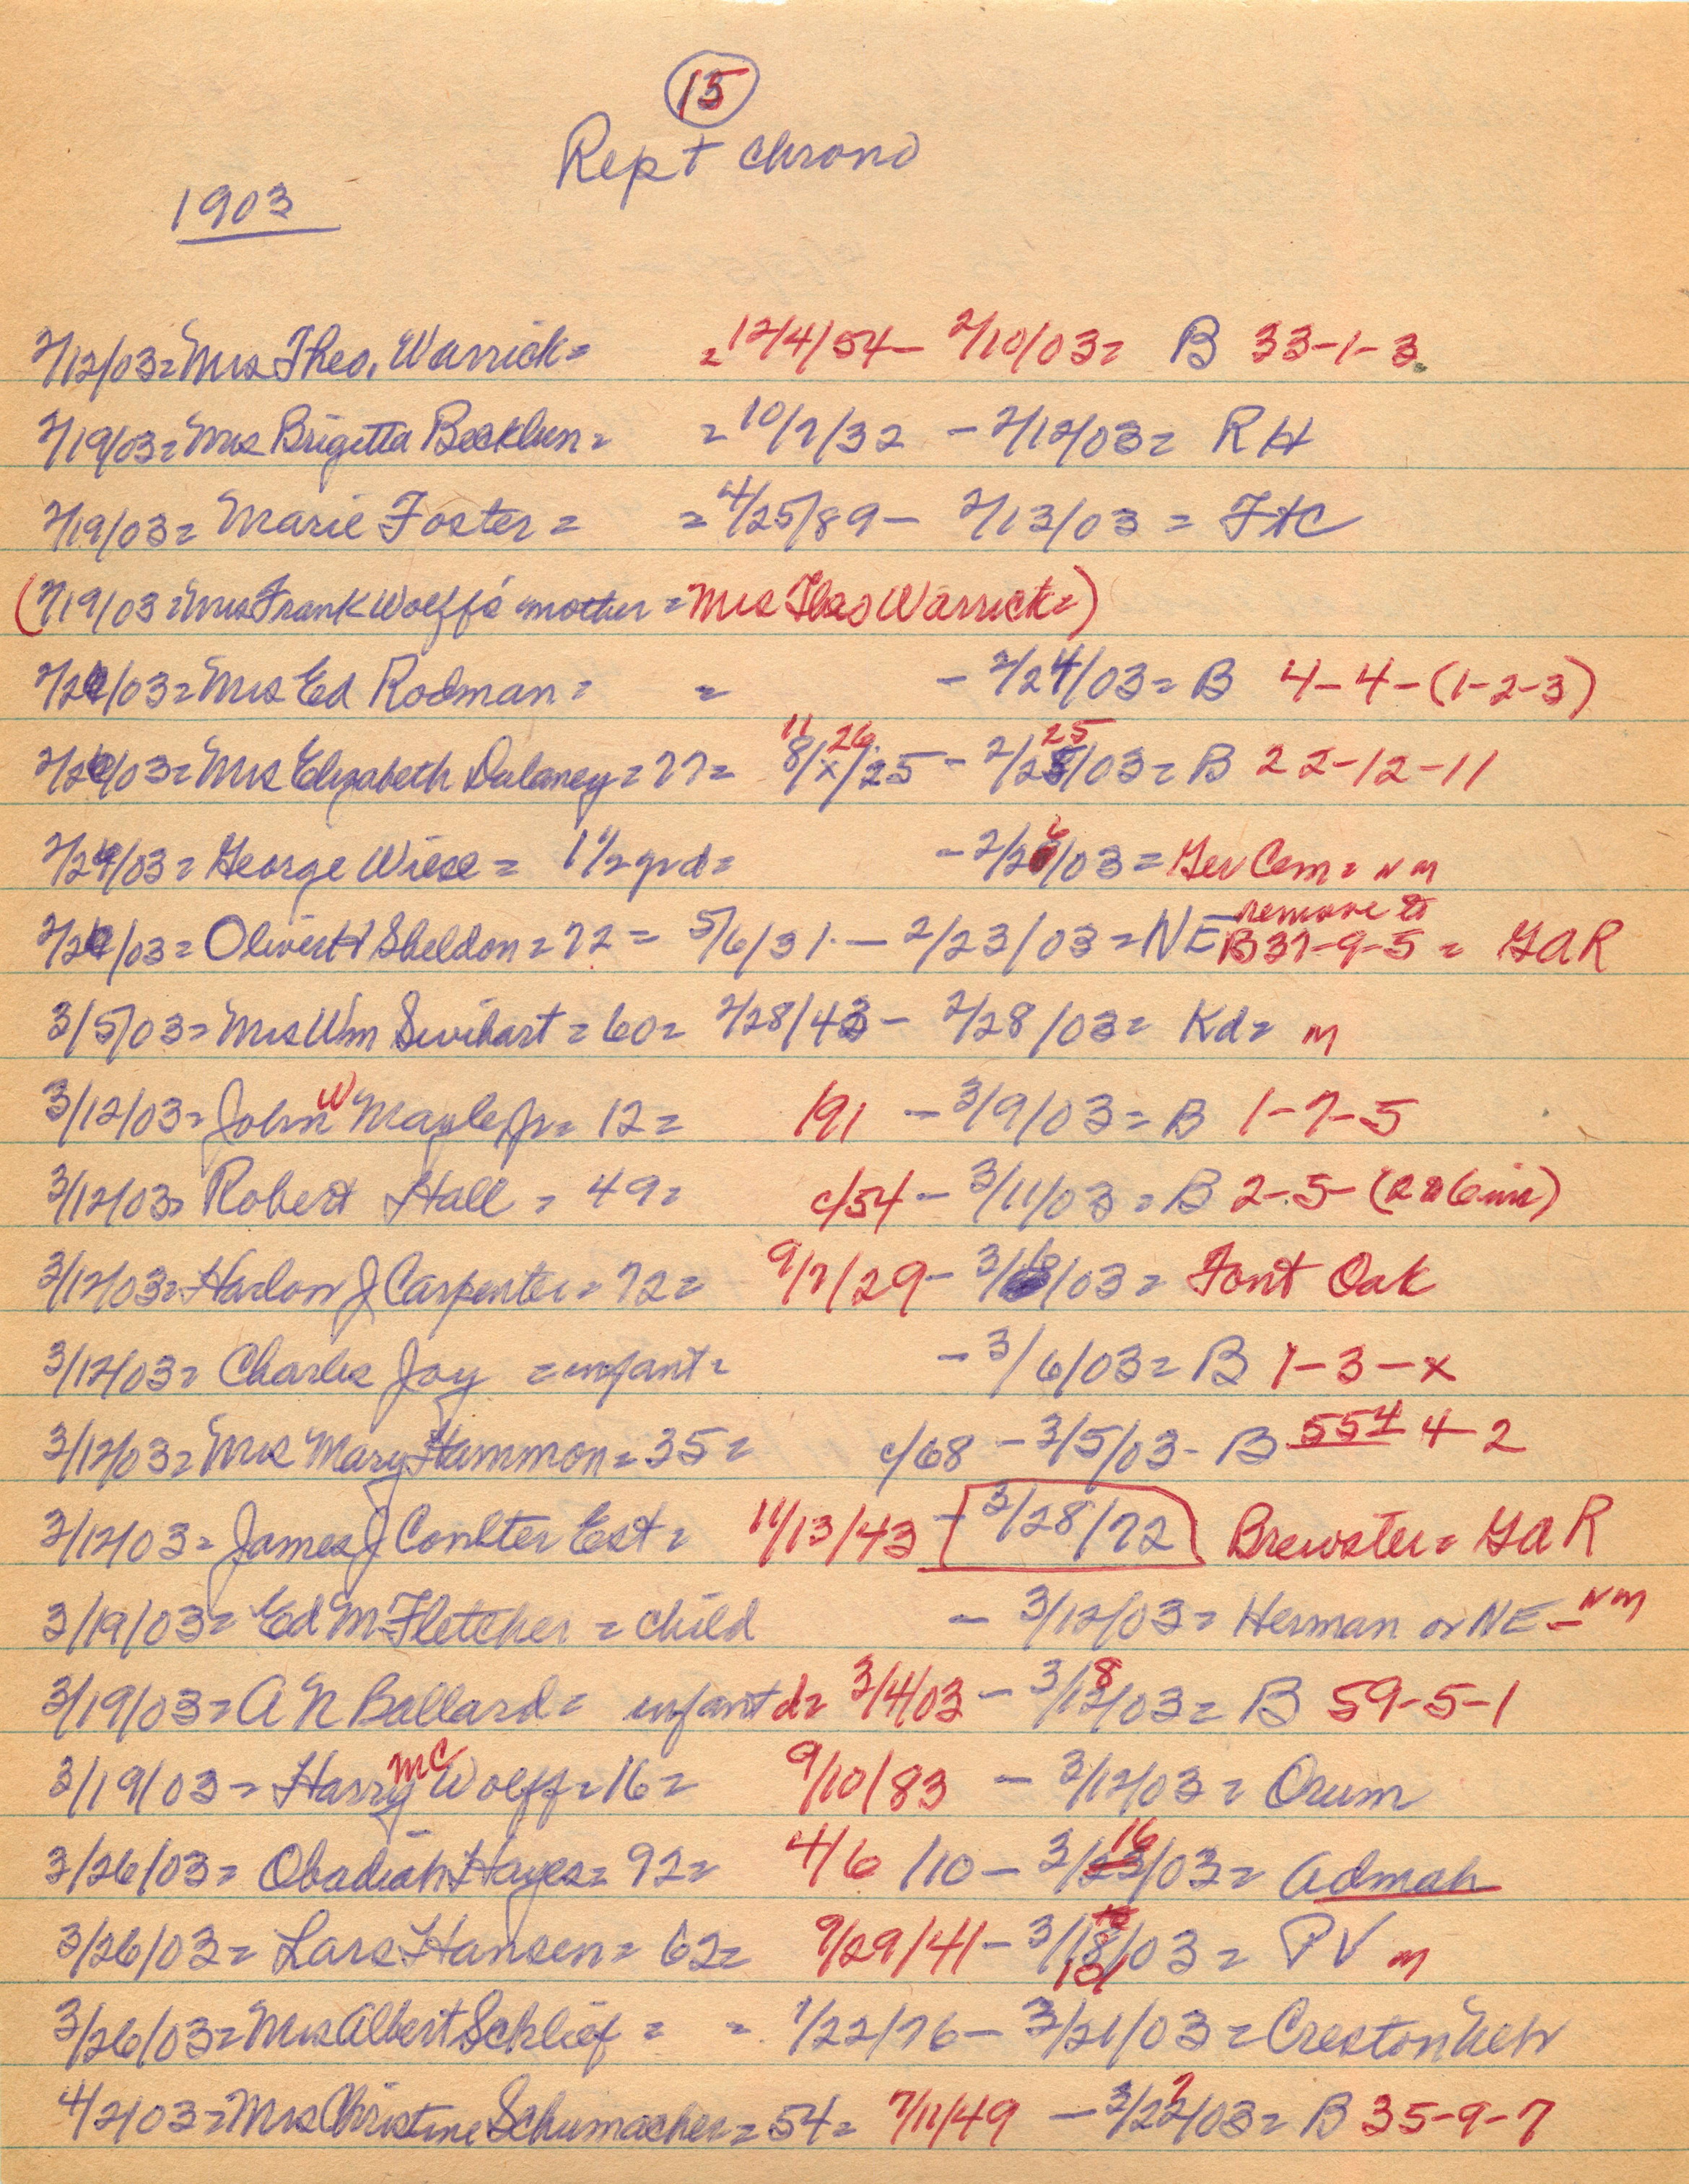 15
Rept chrono
1903
2/12/03= Mrs Theo. Warrick= = 12/4/54 - 2/10/03= B 33-1-3
2/19/03= Mrs Brigetta Becklun= = 10/7/32 - 2/12/03= RH
2/19/03= Marie Foster = = 4/25/89 - 2/13/03 = FtC
(2/19/03= Mrs Frank Wolff's mother = Mrs Theo Warrick=)
2/26/03= Mrs Ed Rodman= = - 2/24/03= B 4-4-(1-2-3)
2/26/03= Mrs Elizabeth Dalaney= 77= 8/x/25 11 26 - 2/25/03= B 22-12-11 25
2/26/03= George Wiese= 1 1/2 yrd= - 2/26/03= Ger Cem= NM
2/26/03= Oliver H Sheldon= 72= 5/6/31 - 2/23/03= NE remove to B 37-9-5 = GAR
3/5/03= Mrs Wm Swihart = 60= 2/28/43 - 2/28/03= Kd= M
3/12/03= John W Maple Jr= 12= /91 - 3/9/03= B 1-7-5
3/12/03= Robert Hall = 49= c/54 - 3/11/03= B 2-5-
3/12/03= Harlon J Carpenter= 72= 9/7/29 - 3/ /03= Font Oak
3/12/03= Charles Joy = infant= - 3/6/03= B 1-3-x
3/12/03= Mrs Mary Hammon= 35= c/68 - 3/5/03- B 554 4-2
3/12/03= James J Coulter Est= 11/13/43 - 3/28/72 Brewster= GAR
3/19/03= Ed M Fletcher = child - 3/12/03= Herman or NE - NM
3/19/03= A N Ballard= infant d= 3/4/03 - 3/18/03= B 59-5-1
3/19/03= Harry Mc Wolff= 16= 9/10/83 - 3/12/03= Orum
3/26/03= Obadiah Hayes= 92= 4/6/10 - 3/23/03= Admah 16
3/26/03= Lars Hansen= 62= 9/29/41 - 3/18/03= PV M
3/26/03= Mrs Albert Schlief = = 1/22/76 - 3/21/03= Creston Neb
4/2/03= Mrs Christine Schumacher= 54= 7/11/49 - 3/22/03= B 35-9-7